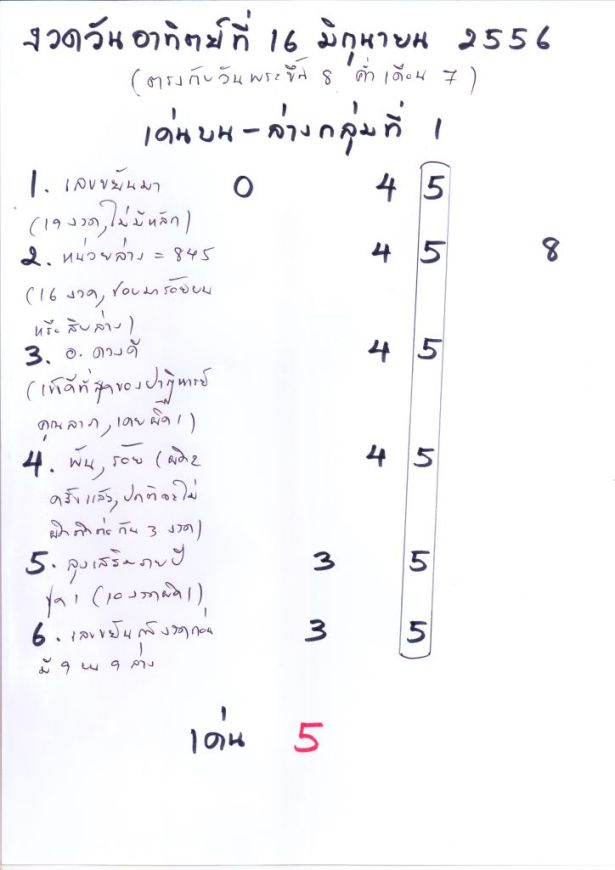 งวดวันอาทิตย์ที่ 16 มิถุนายน 2556
(ตรงกับวันพระขึ้น 8 ค่ำ เดือน 7)
เด่นบน-ล่างกลุ่มที่ 1
1. เลขขยันมา 0 4 5
(19 งวด, ไม่มีหลัก)
2. หน่วยล่าง = 845 4 5 8
(16 งวด, ชอบมาร้อยบน
หรือสิบล่าง)
3. อ. ดวงดี 4 5
(เข้าดีที่สุดของปาฏิหารย์
คูณลาภ, เคยผิด 1)
4. พัน, ร้อย (ผิด 2 4 5
ครั้งแล้ว, ปกติจะไม่
ผิดติดต่อกัน 3 งวด)
5. ลุงเสริมรายปี 3 5
ชุด 1 (10 งวดผิด 1)
6. เลขขยันถ้างวดก่อน 3 5
มี 9 บน 9 ล่าง
เด่น 5